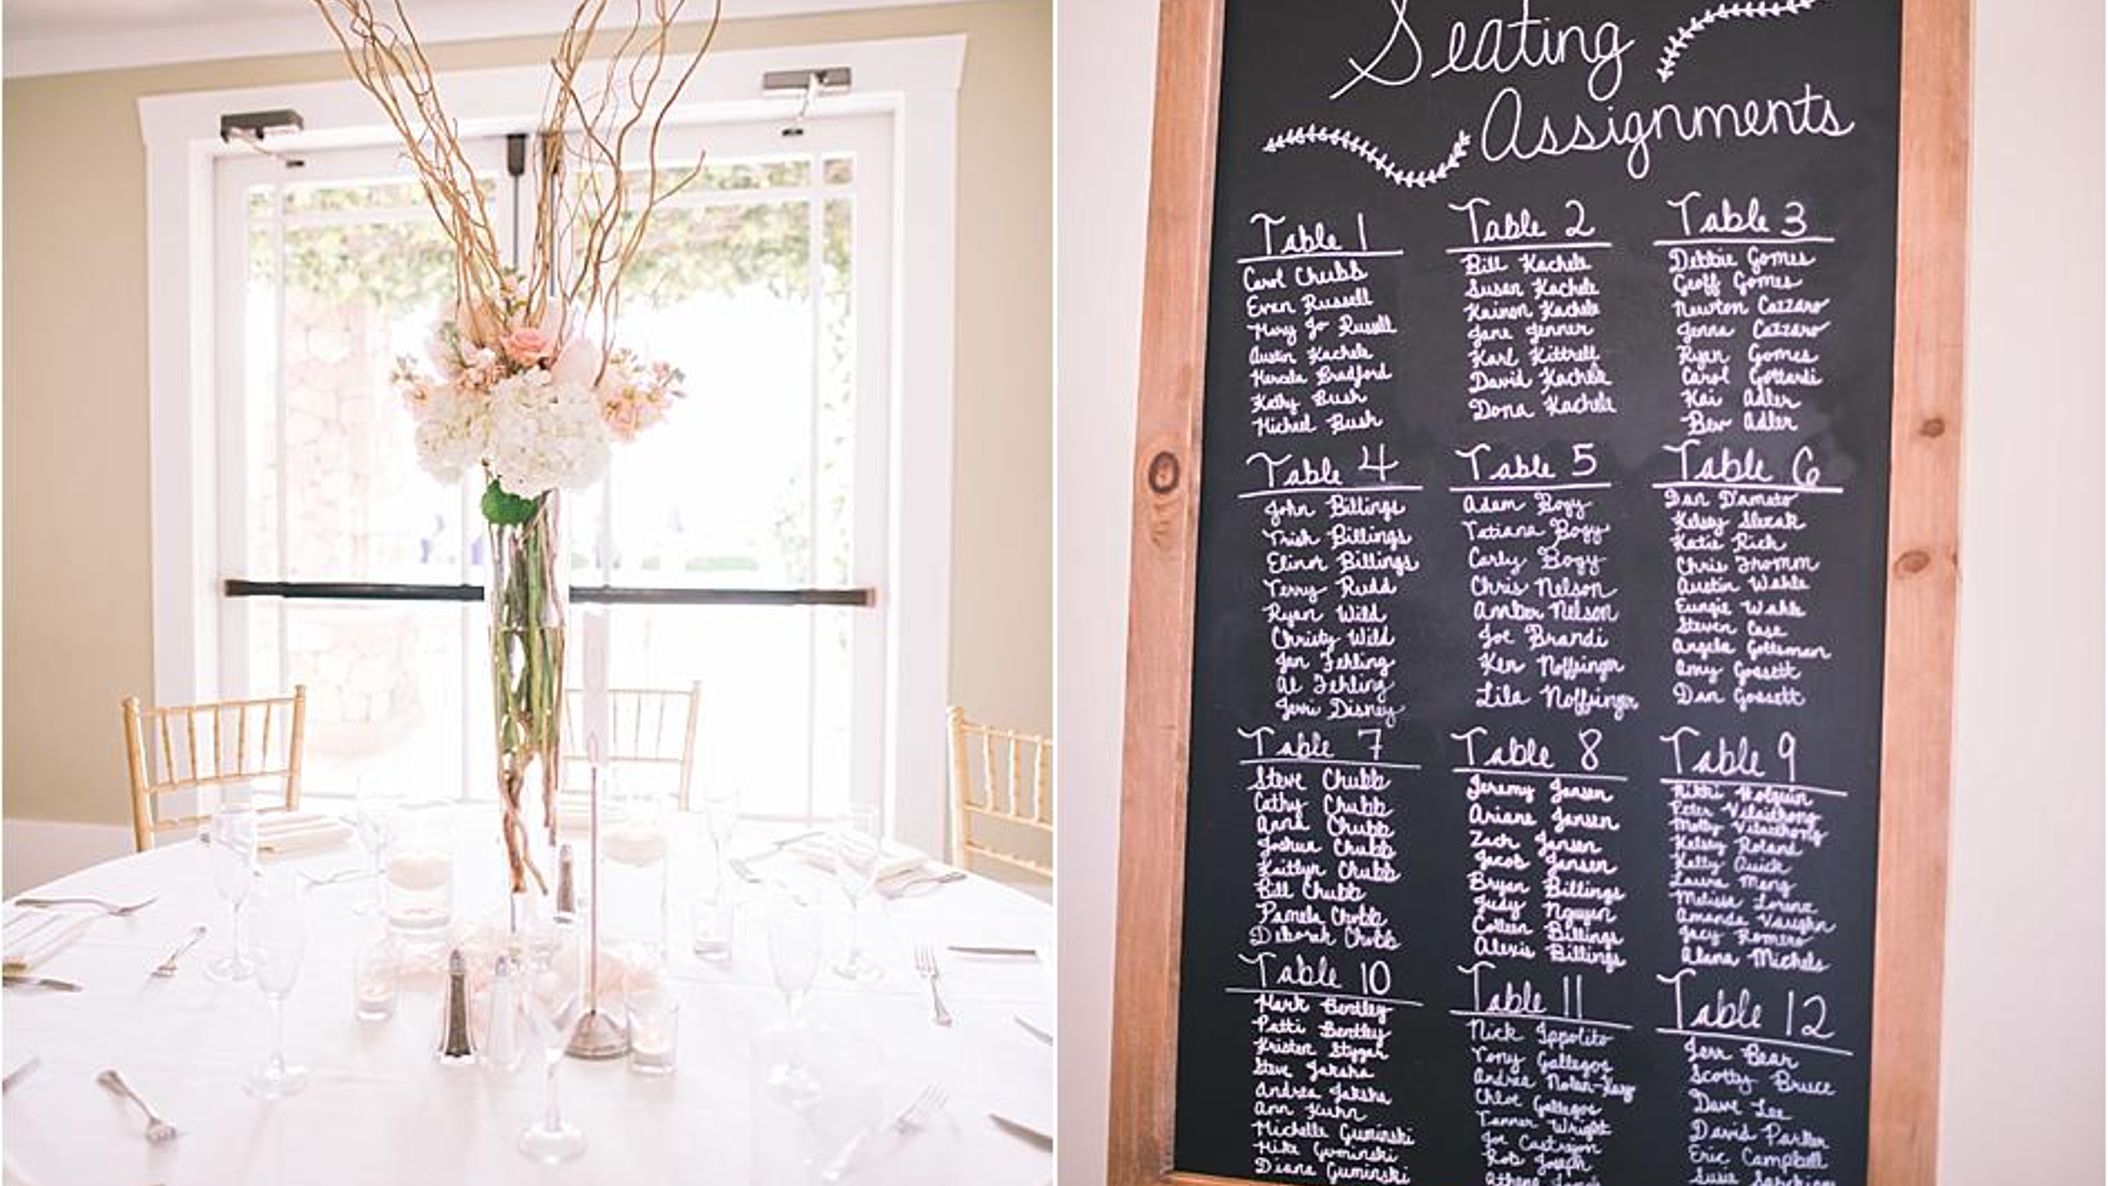 Seating
Assignments
Table 1
Carol Chubb
Evan Russell
Mary Jo Russell
Austin Kachele
Marcela Bradford
Kathy Bush
Michael Bush
Table 2
Bill Kachele
Susan Kachele
Kainon Kachele
Jane Jenner
Karl Kittrell
David Kachele
Dona Kachele
Table 3
Debbie Gomes
Geoff Gomes
Newton Cazzaro
Jenna Cazzaro
Ryan Gomes
Carol Gottardi
Kai Adler
Bev Adler
Table 4
John Billings
Trish Billings
Elinor Billings
Terry Rudd
Ryan Wild
Christy Wild
Jan Fehling
Al Fehling
Jerri Disney
Table 5
Adam Bogy
Tatiana Bogy
Carly Bogy
Chris Nelson
Amber Nelson
Joe Brandi
Ken Noffsinger
Lila Noffsinger
Table 6
Dan D'amato
Kelsey Slezak
Katie Rich
Chris Fromm
Austin Wahle
Eungie Wahle
Steven Case
Angela Gottsman
Amy Gossett
Dan Gossett
Table 7
Steve Chubb
Cathy Chubb
Anna Chubb
Joshua Chubb
Kaitlyn Chubb
Bill Chubb
Pamela Chubb
Deborah Chubb
Table 8
Jeremy Jansen
Ariane Jansen
Zach Jansen
Jacob Jansen
Bryan Billings
Judy Nguyen
Colleen Billings
Alexis Billings
Table 9
Nikki Holguin
Peter Vilaithong
Molly Vilaithong
Kelsey Roland
Kelly Quick
Laura Meng
Melissa Lorenz
Amanda Vaughn
Jacy Romero
Alana Michels
Table 10
Mark Bentley
Patti Bentley
Kristen Stygar
Steve Jaksha
Andrea Jaksha
Ann Kuhn
Michelle Guminski
Mike Guminski
Diana Guminski
Table 11
Nick Ippolito
Tony Gallegos
Andrea Nolan-
Chloe Gallegos
Tanner Wright
Joe Castrejon
Rob Joseph
Table 12
Jerr Bear
Scotty Bruce
Dave Lee
David Parker
Eric Campbell
Susie